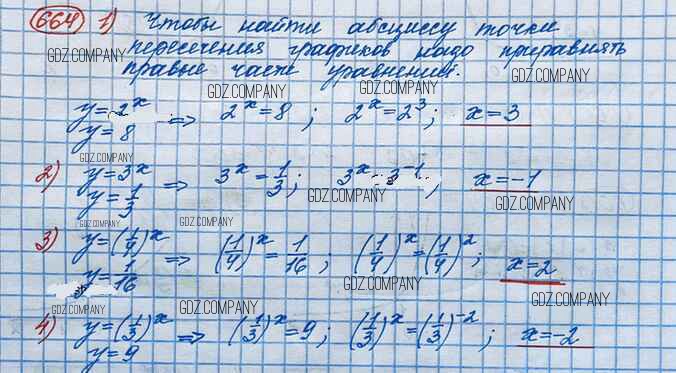 664 1) Чтобы найти абсциссу точки
GDZ.COMPANY
пересечения графиков надо приравнять
GDZ.COMPANY
правые части уравнений.
GDZ.COMPANY GDZ.COMPANY
y=2^x => 2^x=8; 2^x=2^3; x=3
y=8
GDZ.COMPANY GDZ.COMPANY
GDZ.COMPANY
2) y=3^x => 3^x=1/3; 3^x=3^-1; x=-1
y=1/3
GDZ.COMPANY GDZ.COMPANY
GDZ.COMPANY GDZ.COMPANY
3) y=(1/4)^x => (1/4)^x=1/16; (1/4)^x=(1/4)^2; x=2
y=1/16
GDZ.COMPANY
GDZ.COMPANY GDZ.COMPANY GDZ.COMPANY
4) y=(1/3)^x => (1/3)^x=9; (1/3)^x=(1/3)^-2; x=-2
y=9